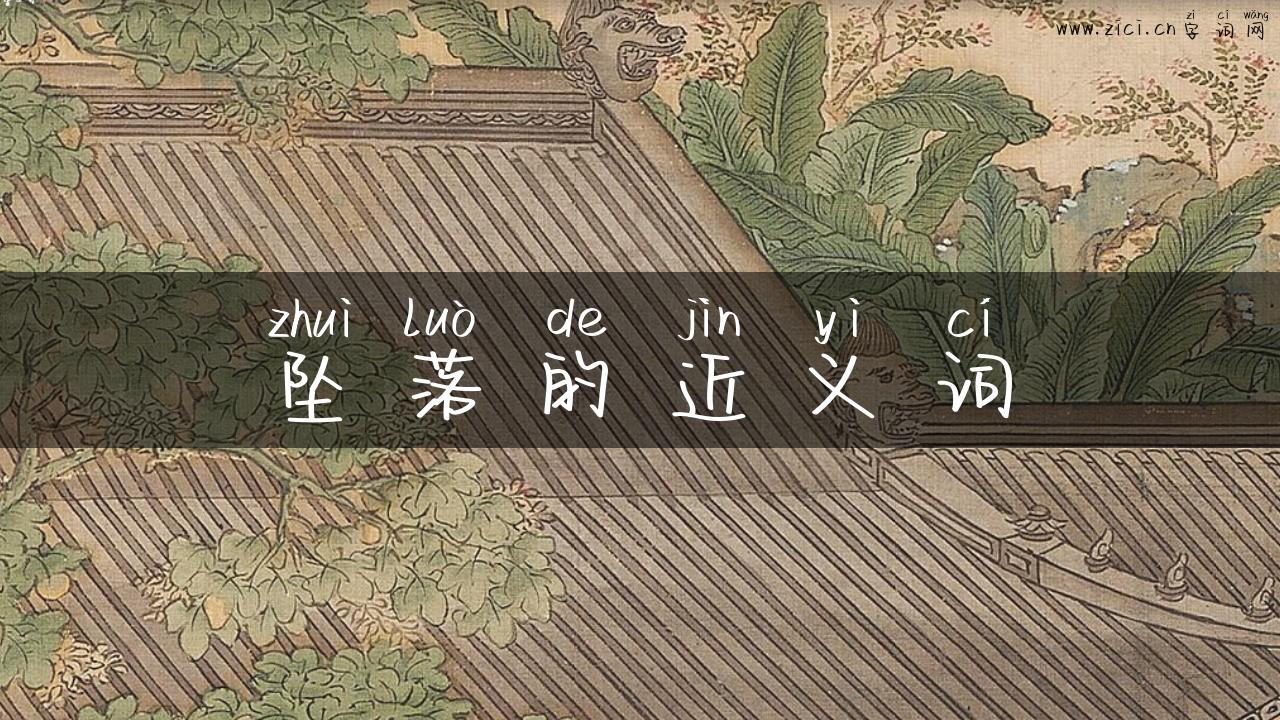 zì cí wǎng
www.zici.cn 字 词 网
zhuì luò de jìn yì cí
坠 落 的 近 义 词